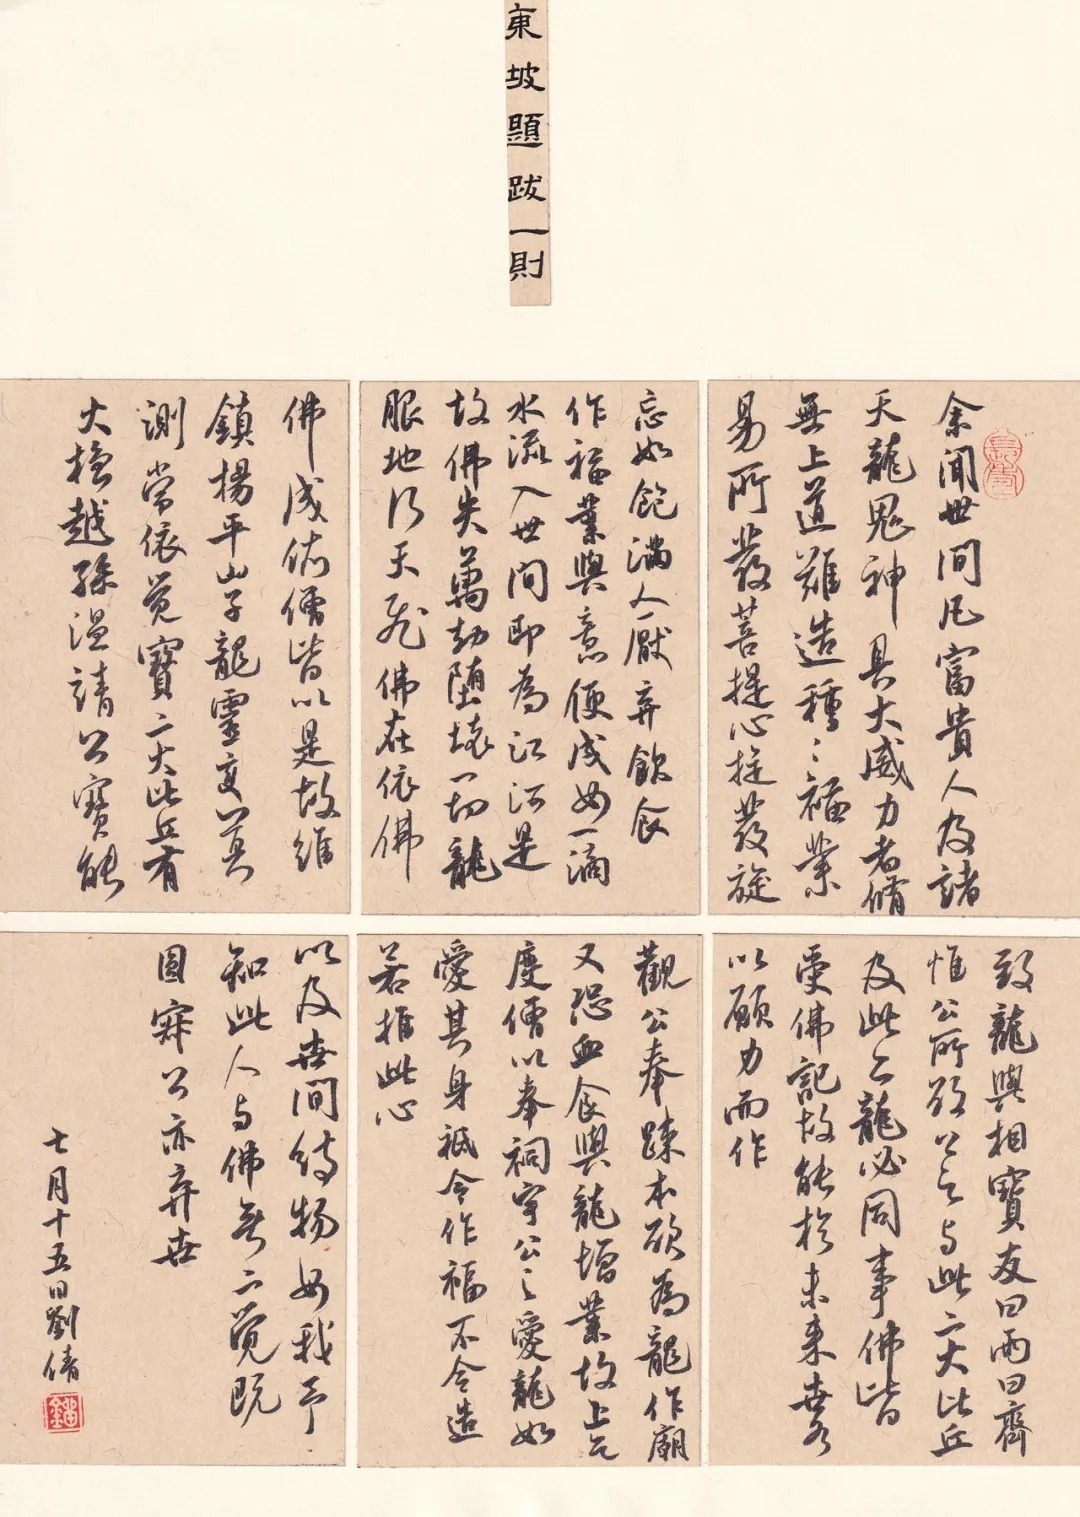 東坡題跋一則
余聞世間凡富貴人及諸
天龍鬼神具大威力者脩
無上道難造種〻福業
易所發菩提心捉發旋
忘如飽滿人厭棄飲食
作福業與意便成如一滴
水流入世間即為江河是
故佛失萬劫墮壞一切龍
服地行天飛佛在依佛
佛成佑僧皆以是故維
鎮揚平山子龍靈變莫
測常依覺寶二大比丘有
大檀越孫溫請公寶能
致龍與相寶友曰雨曰齊
惟公所欲公之与此二大比丘
及此二龍必同事佛皆
受佛記故能於未來世各
以願力而作
觀公奉疏本欲為龍作廟
又恐血食與龍增業故上乞
度僧以奉祠宇公之愛龍如
愛其身祇令作福不令造
若推此心
以及世間待物如我予
知此人与佛無二覺既
圓寂公亦棄世
七月十五日劉倩